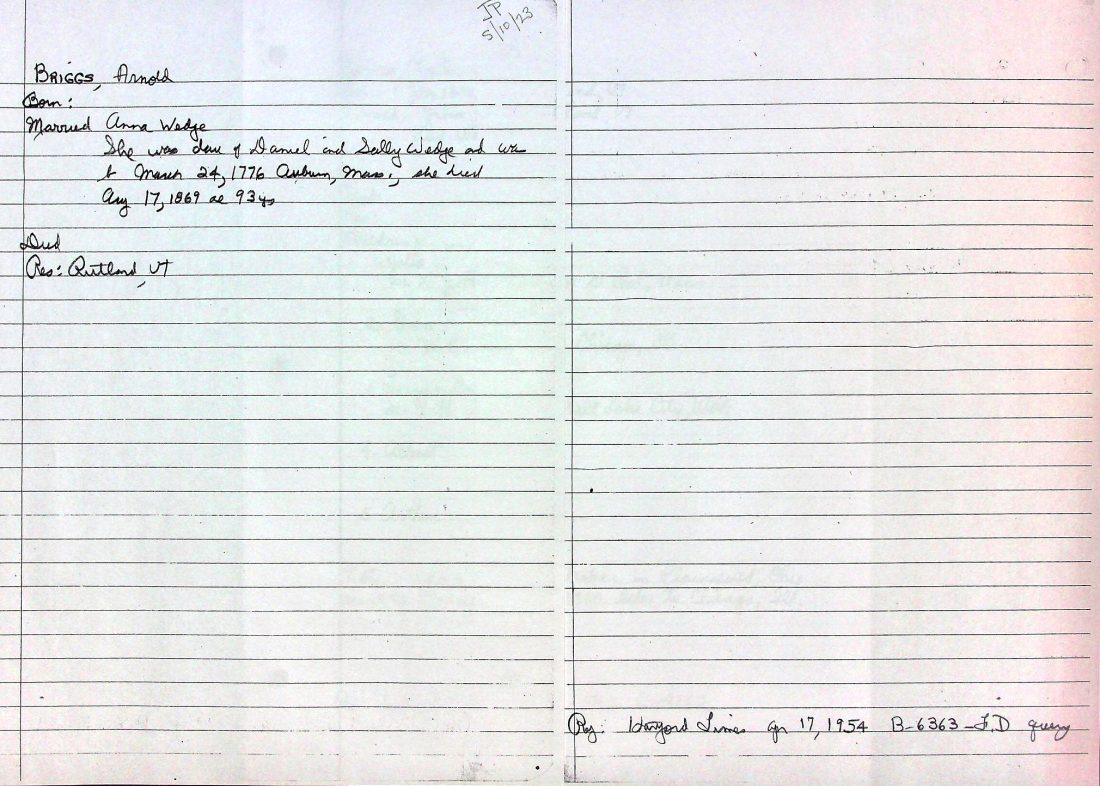 JP
5/10/23
BRIGGS, Arnold
Born:
Married Anna Wedge
She was dau of Daniel and Sally Wedge and was
b March 24, 1776 Auburn, Mass.; she died
Aug 17, 1869 ae 93 ys
Died
Res: Rutland, VT
Hartford Times Apr 17, 1954 B-6363-F.D query